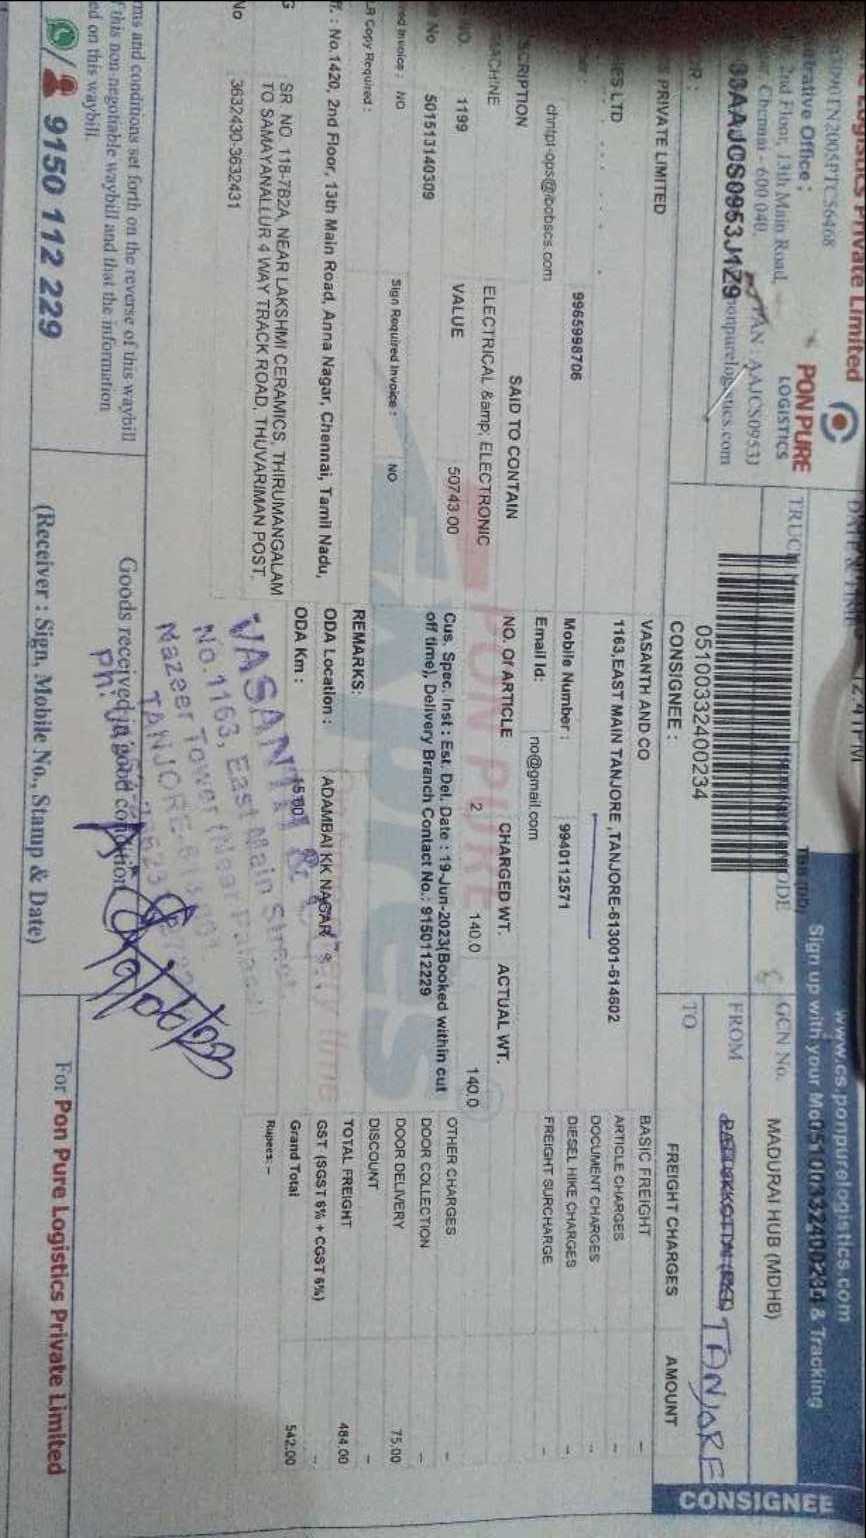 Logistics Private Limited
TN2005PTC56468
trative Office :
2nd Floor, 13th Main Road,
Chennai - 600 040.
PAN : AAJCS0953J
33AAJCS0953J1Z9
ponpurelogistics.com
PON PURE
LOGISTICS
DATE & TIME
12.41PM
TRUCK
ODE
05100332400234
www.cs.ponpurelogistics.com
Sign up with your Mo05100332400234 & Tracking
GCN No.
FROM
MADURAI HUB (MDHB)
TO
TANJORE
CONSIGNEE
PRIVATE LIMITED
SES LTD
9965998706
chntpl-ops@bobscs.com
CONSIGNEE :
VASANTH AND CO
1163,EAST MAIN TANJORE ,TANJORE-613001-614602
Mobile Number :
9940112571
Email Id:
no@gmail.com
SCRIPTION
SAID TO CONTAIN
NO. Of ARTICLE
CHARGED WT.
ACTUAL WT.
MACHINE
ELECTRICAL &amp; ELECTRONIC
2
140.0
140.0
NO.
1199
VALUE
50743.00
No
501513140309
Cus. Spec. Inst : Est. Del. Date : 19-Jun-2023(Booked within cut
off time), Delivery Branch Contact No.: 9150112229
ed Invoice :
NO
Sign Required Invoice :
NO
R Copy Required :
REMARKS:
ff. : No.1420, 2nd Floor, 13th Main Road, Anna Nagar, Chennai, Tamil Nadu,
ODA Location :
ADAMBAI KK NAGAR
G
SR NO. 118-7B2A, NEAR LAKSHMI CERAMICS, THIRUMANGALAM
TO SAMAYANALLUR 4 WAY TRACK ROAD, THUVARIMAN POST,
ODA Km :
No
3632430-3632431
FREIGHT CHARGES
AMOUNT
BASIC FREIGHT
–
ARTICLE CHARGES
–
DOCUMENT CHARGES
–
DIESEL HIKE CHARGES
–
FREIGHT SURCHARGE
–
OTHER CHARGES
–
DOOR COLLECTION
–
DOOR DELIVERY
75.00
DISCOUNT
–
TOTAL FREIGHT
484.00
GST (SGST 6% + CGST 6%)
–
Grand Total
542.00
Rupees: –
PON PURE
EXPRES
VASANTH & CO
No.1163, East Main Street
Nazeer Tower (Near Palace)
TANJORE
rms and conditions set forth on the reverse of this waybill
f this non-negotiable waybill and that the information
ed on this waybill.
9150 112 229
Goods received in good condition
(Receiver : Sign, Mobile No., Stamp & Date)
For Pon Pure Logistics Private Limited